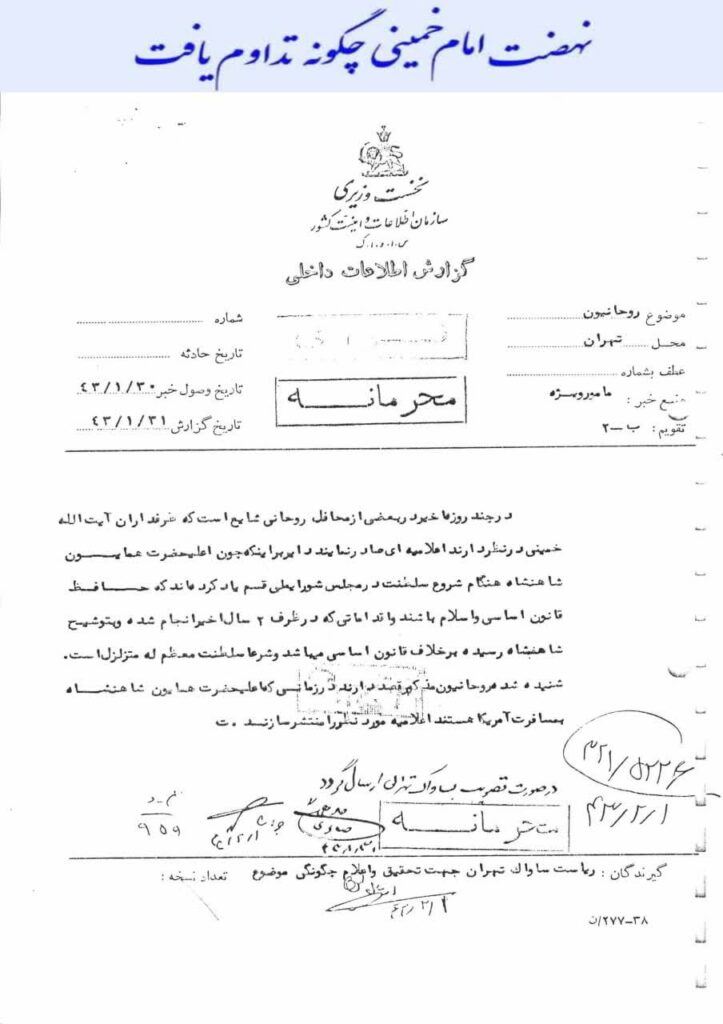 نهضت امام خمینی چگونه تداوم یافت
نخست وزیری
سازمان اطلاعات و امنیت کشور
س.ا.و.ا.ک
گزارش اطلاعات داخلی
موضوع روحانیون
محل تهران
عطف بشماره
منبع خبر : مامور ویژه
تقویم : ب-۲
محرمانه
شماره
تاریخ حادثه
تاریخ وصول خبر ۴۳/۱/۳۰
تاریخ گزارش ۴۳/۱/۳۱
در چند روز اخیر در بعضی از محافل روحانی شایع است که طرفداران آیت الله
خمینی در نظر دارند اعلامیه ای صادر نمایند دایر بر اینکه چون اعلیحضرت همایون
شاهنشاه هنگام شروع سلطنت در مجلس شورایملی قسم یاد کرده اند که حافظ
قانون اساسی و اسلام باشند و اقداماتی که در ظرف ۲ سال اخیر انجام شده و بتوشیح
شاهنشاه رسیده بر خلاف قانون اساسی میباشد و شرعا سلطنت معظم له متزلزل است.
شنیده شده روحانیون مذکور قصد دارند در زمانی که اعلیحضرت همایون شاهنشاه
بمسافرت آمریکا هستند اعلامیه مورد نظر را منتشر سازند. ت
۳۲۱/۵۲۲۶
۴۳/۲/۱
در صورت تصویب بساواک تهران ارسال گردد
محرمانه
۹۵۹
گیرندگان : ریاست ساواک تهران جهت تحقیق و اعلام چگونگی موضوع تعداد نسخه :
۴۳/۲/۱
۲۷۷-۳۸/ن